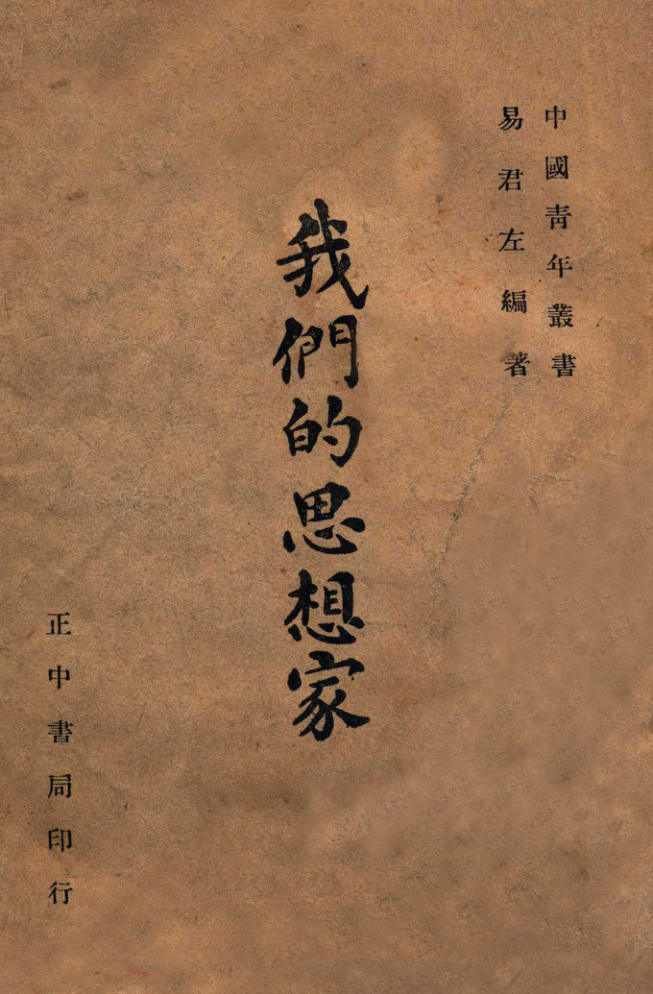 中國靑年叢書
易君左編著
我們的思想家
正中書局印行